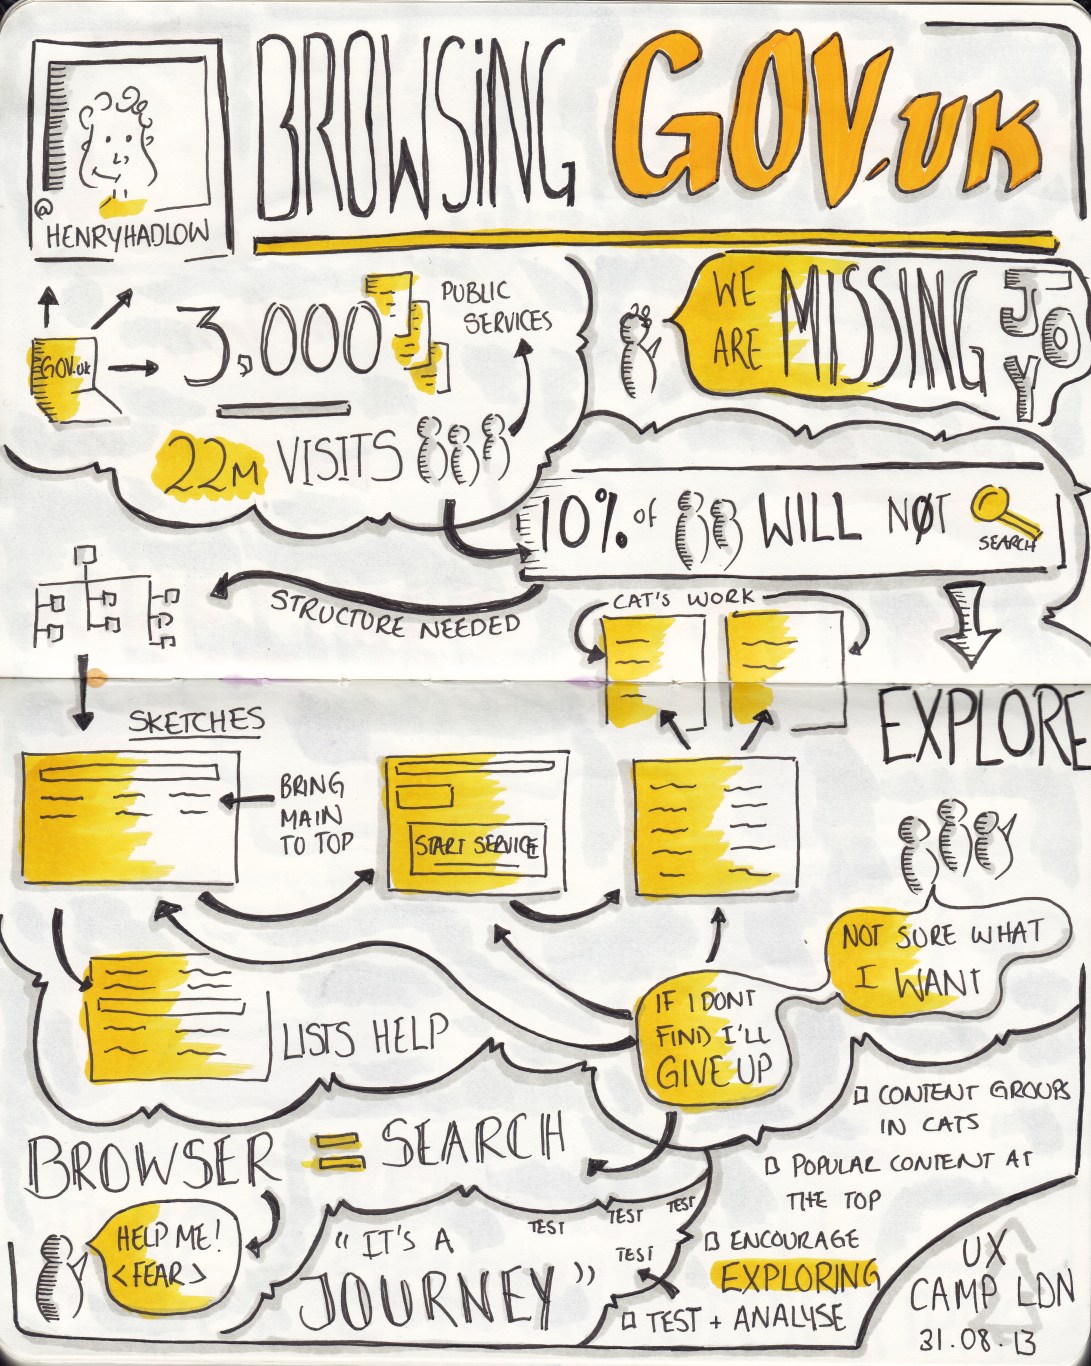 BROWSING GOV.UK
@
HENRYHADLOW
GOV.UK
3,000
PUBLIC
SERVICES
22M VISITS
WE
ARE
MISSING
JOY
10% OF WILL NOT
SEARCH
STRUCTURE NEEDED
CAT'S WORK
EXPLORE
SKETCHES
BRING
MAIN
TO TOP
START SERVICE
NOT SURE WHAT
I WANT
IF I DONT
FIND I'LL
GIVE UP
LISTS HELP
BROWSER = SEARCH
HELP ME!
<FEAR>
"IT'S A
JOURNEY"
TEST
TEST
TEST
TEST
CONTENT GROUPS
IN CATS
POPULAR CONTENT AT
THE TOP
ENCOURAGE
EXPLORING
TEST + ANALYSE
UX
CAMP LDN
31.08.13